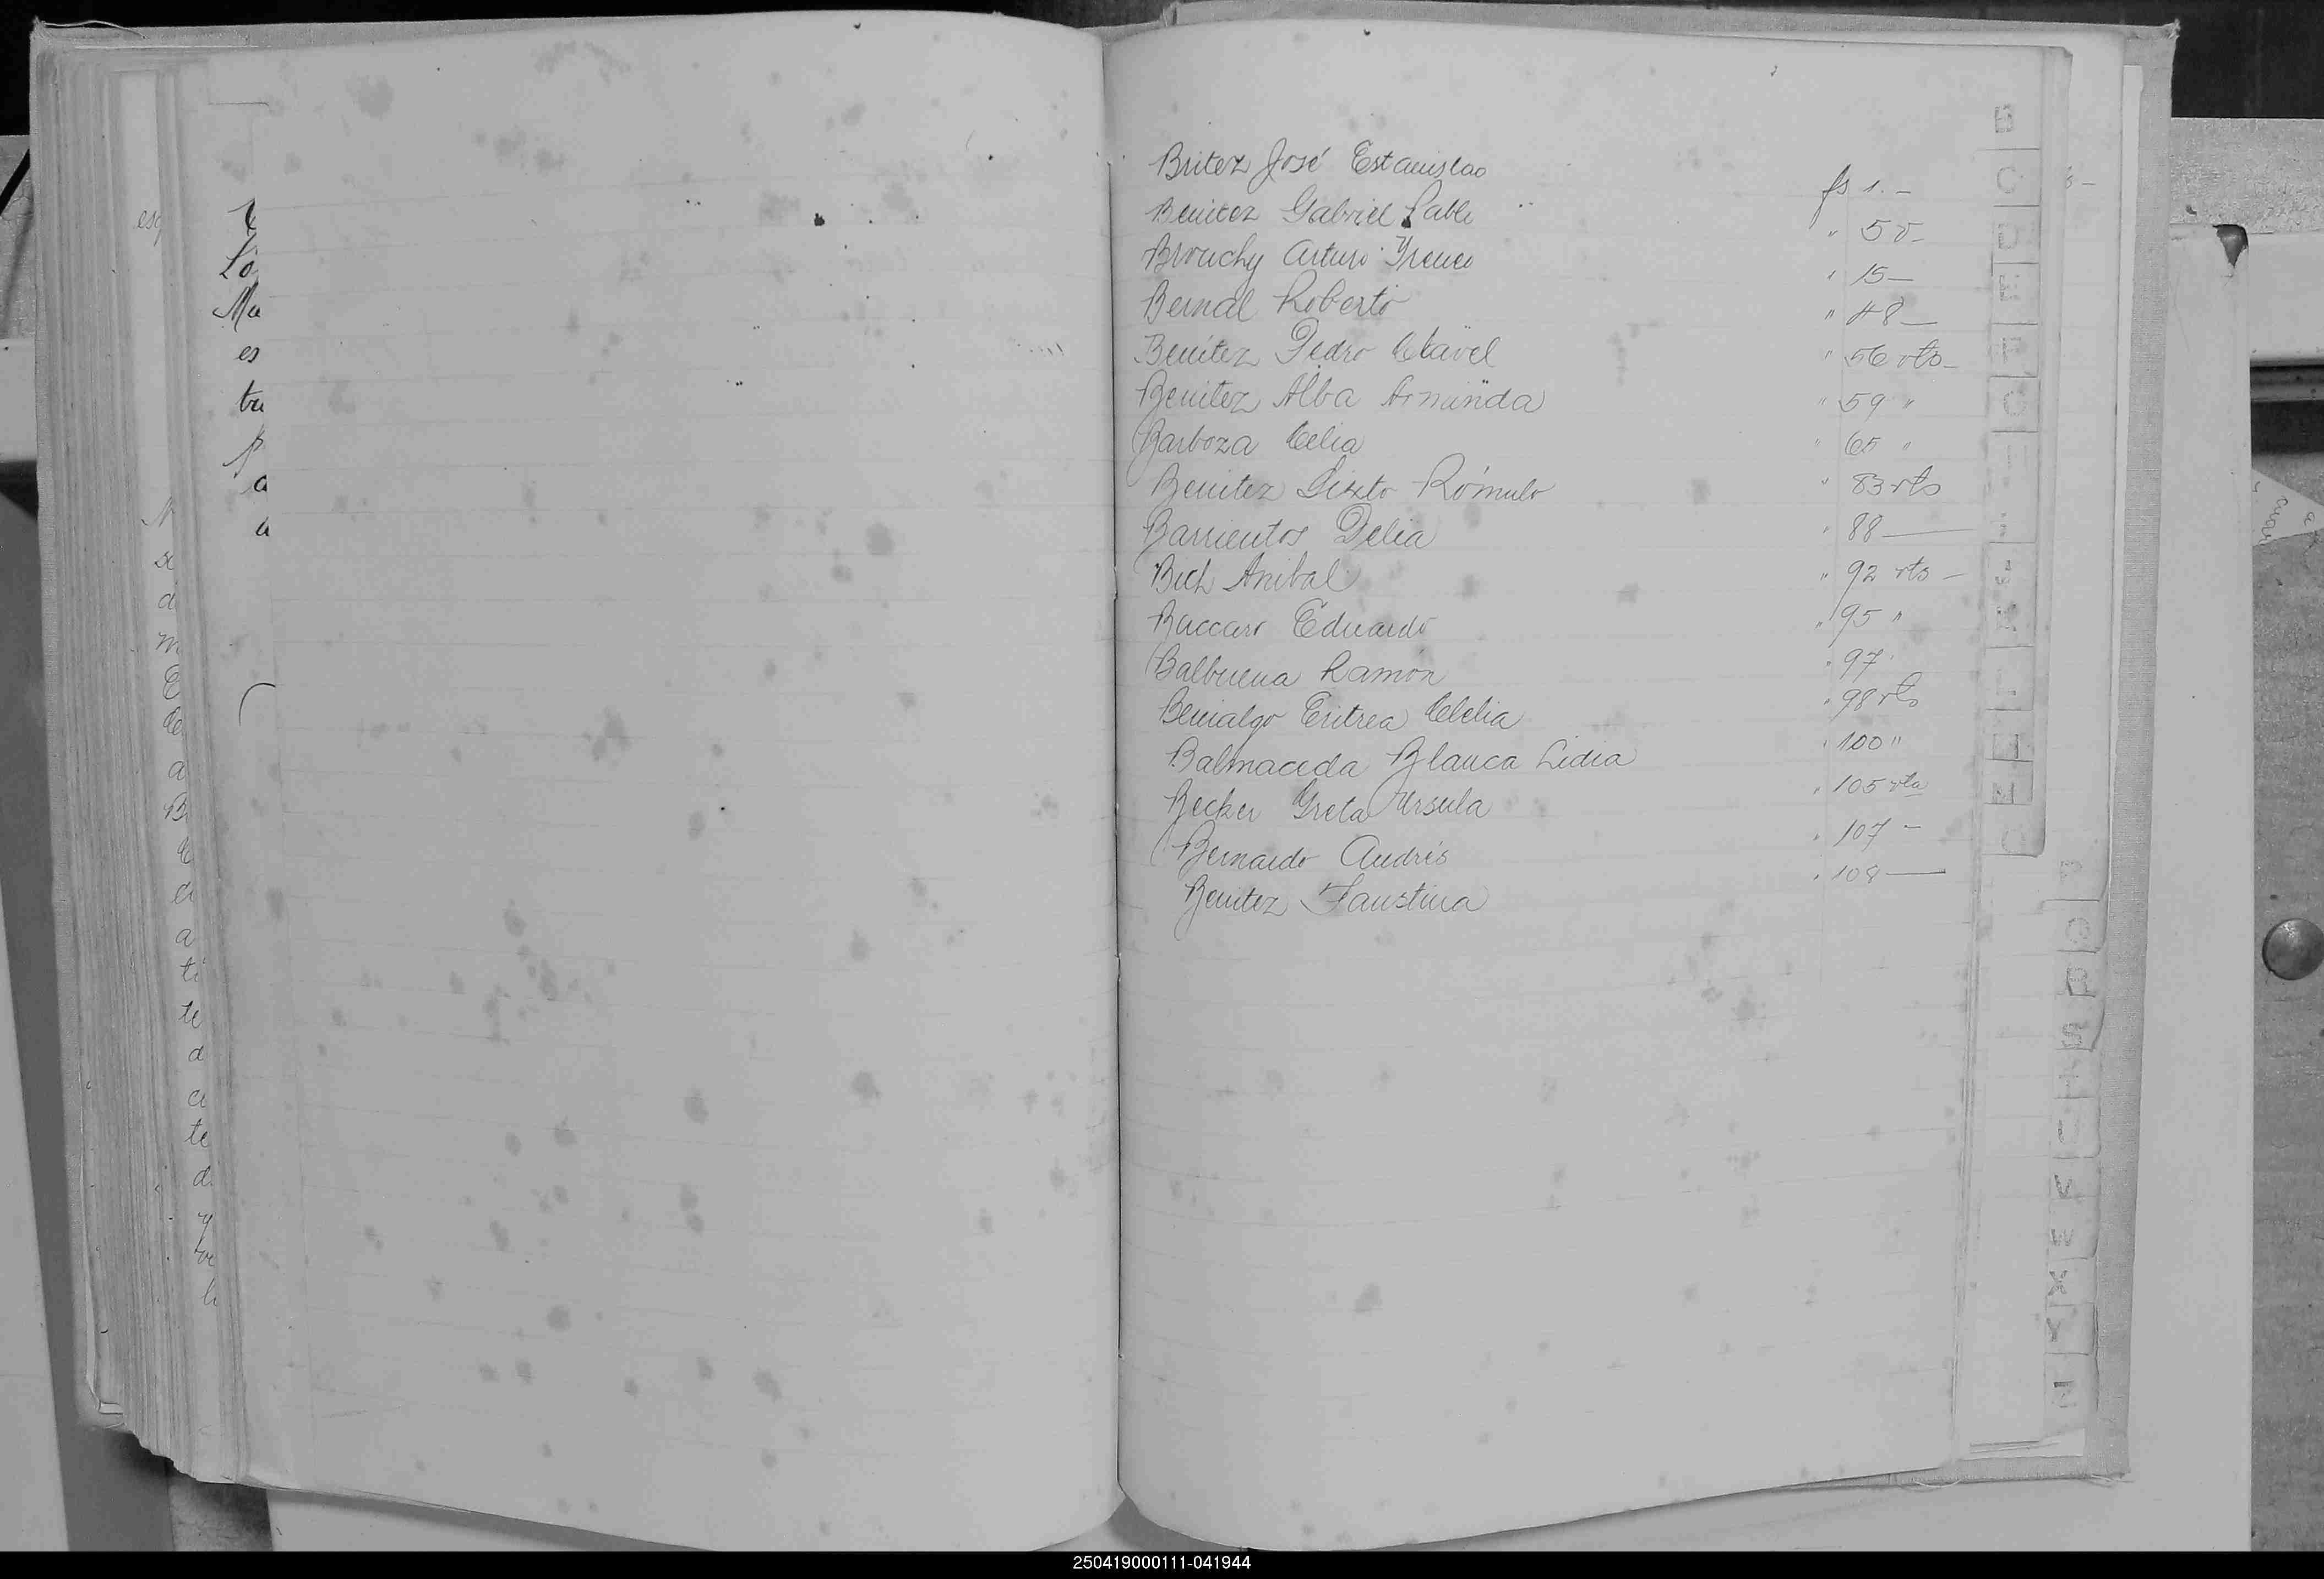 Britez José Estanislao fs 1.-
Benitez Gabriel Pablo " 50-
Brouchy Arturo Yreneo " 15-
Bernal Roberto " 48-
Benítez Pedro Clavel " 56 vto-
Benitez Alba Arminda " 59 "
Barboza Celia " 65 "
Benitez Sixto Rómulo " 83 vto
Barrientos Delia " 88-
Bich Anibal " 92 vto-
Baccaro Eduardo " 95 "
Balbuena Ramón " 97
Benialgo Eritrea Clelia " 98 vto
Balmaceda Blanca Lidia " 100 "
Becker Greta Ursula " 105 vta
Bernardo Andrés " 107 -
Benitez Faustina " 108-
B
C
D
E
F
G
R
S
U
V
W
X
Y
Z
esq
Lo
Ma
es
tu
a
a
250419000111-041944